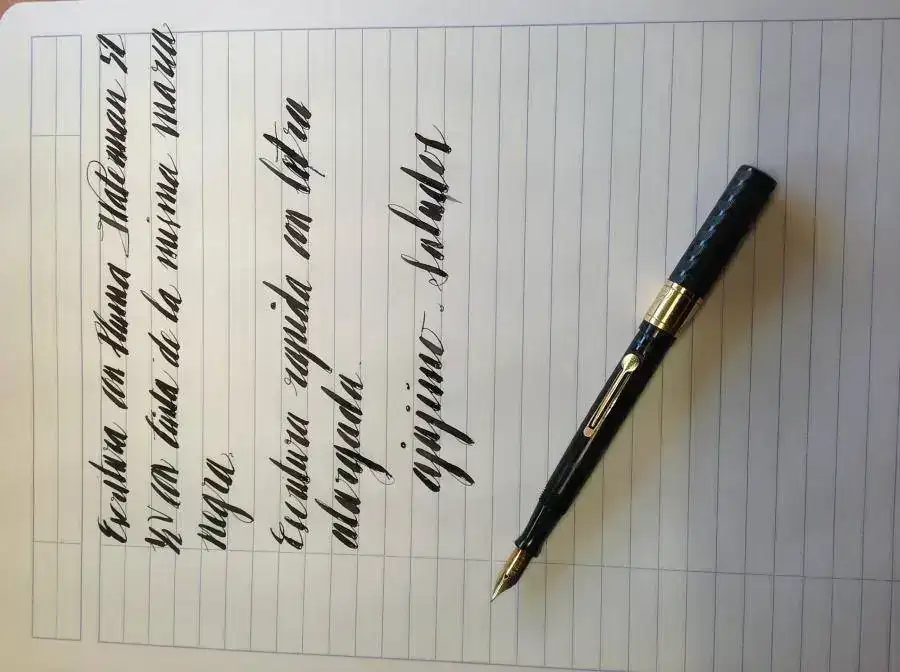 Escritura con pluma Waterman 52
½ V con tinta de la misma marca
negra.
Escritura rapida con letra
alargada.
ajajimo. Saludos